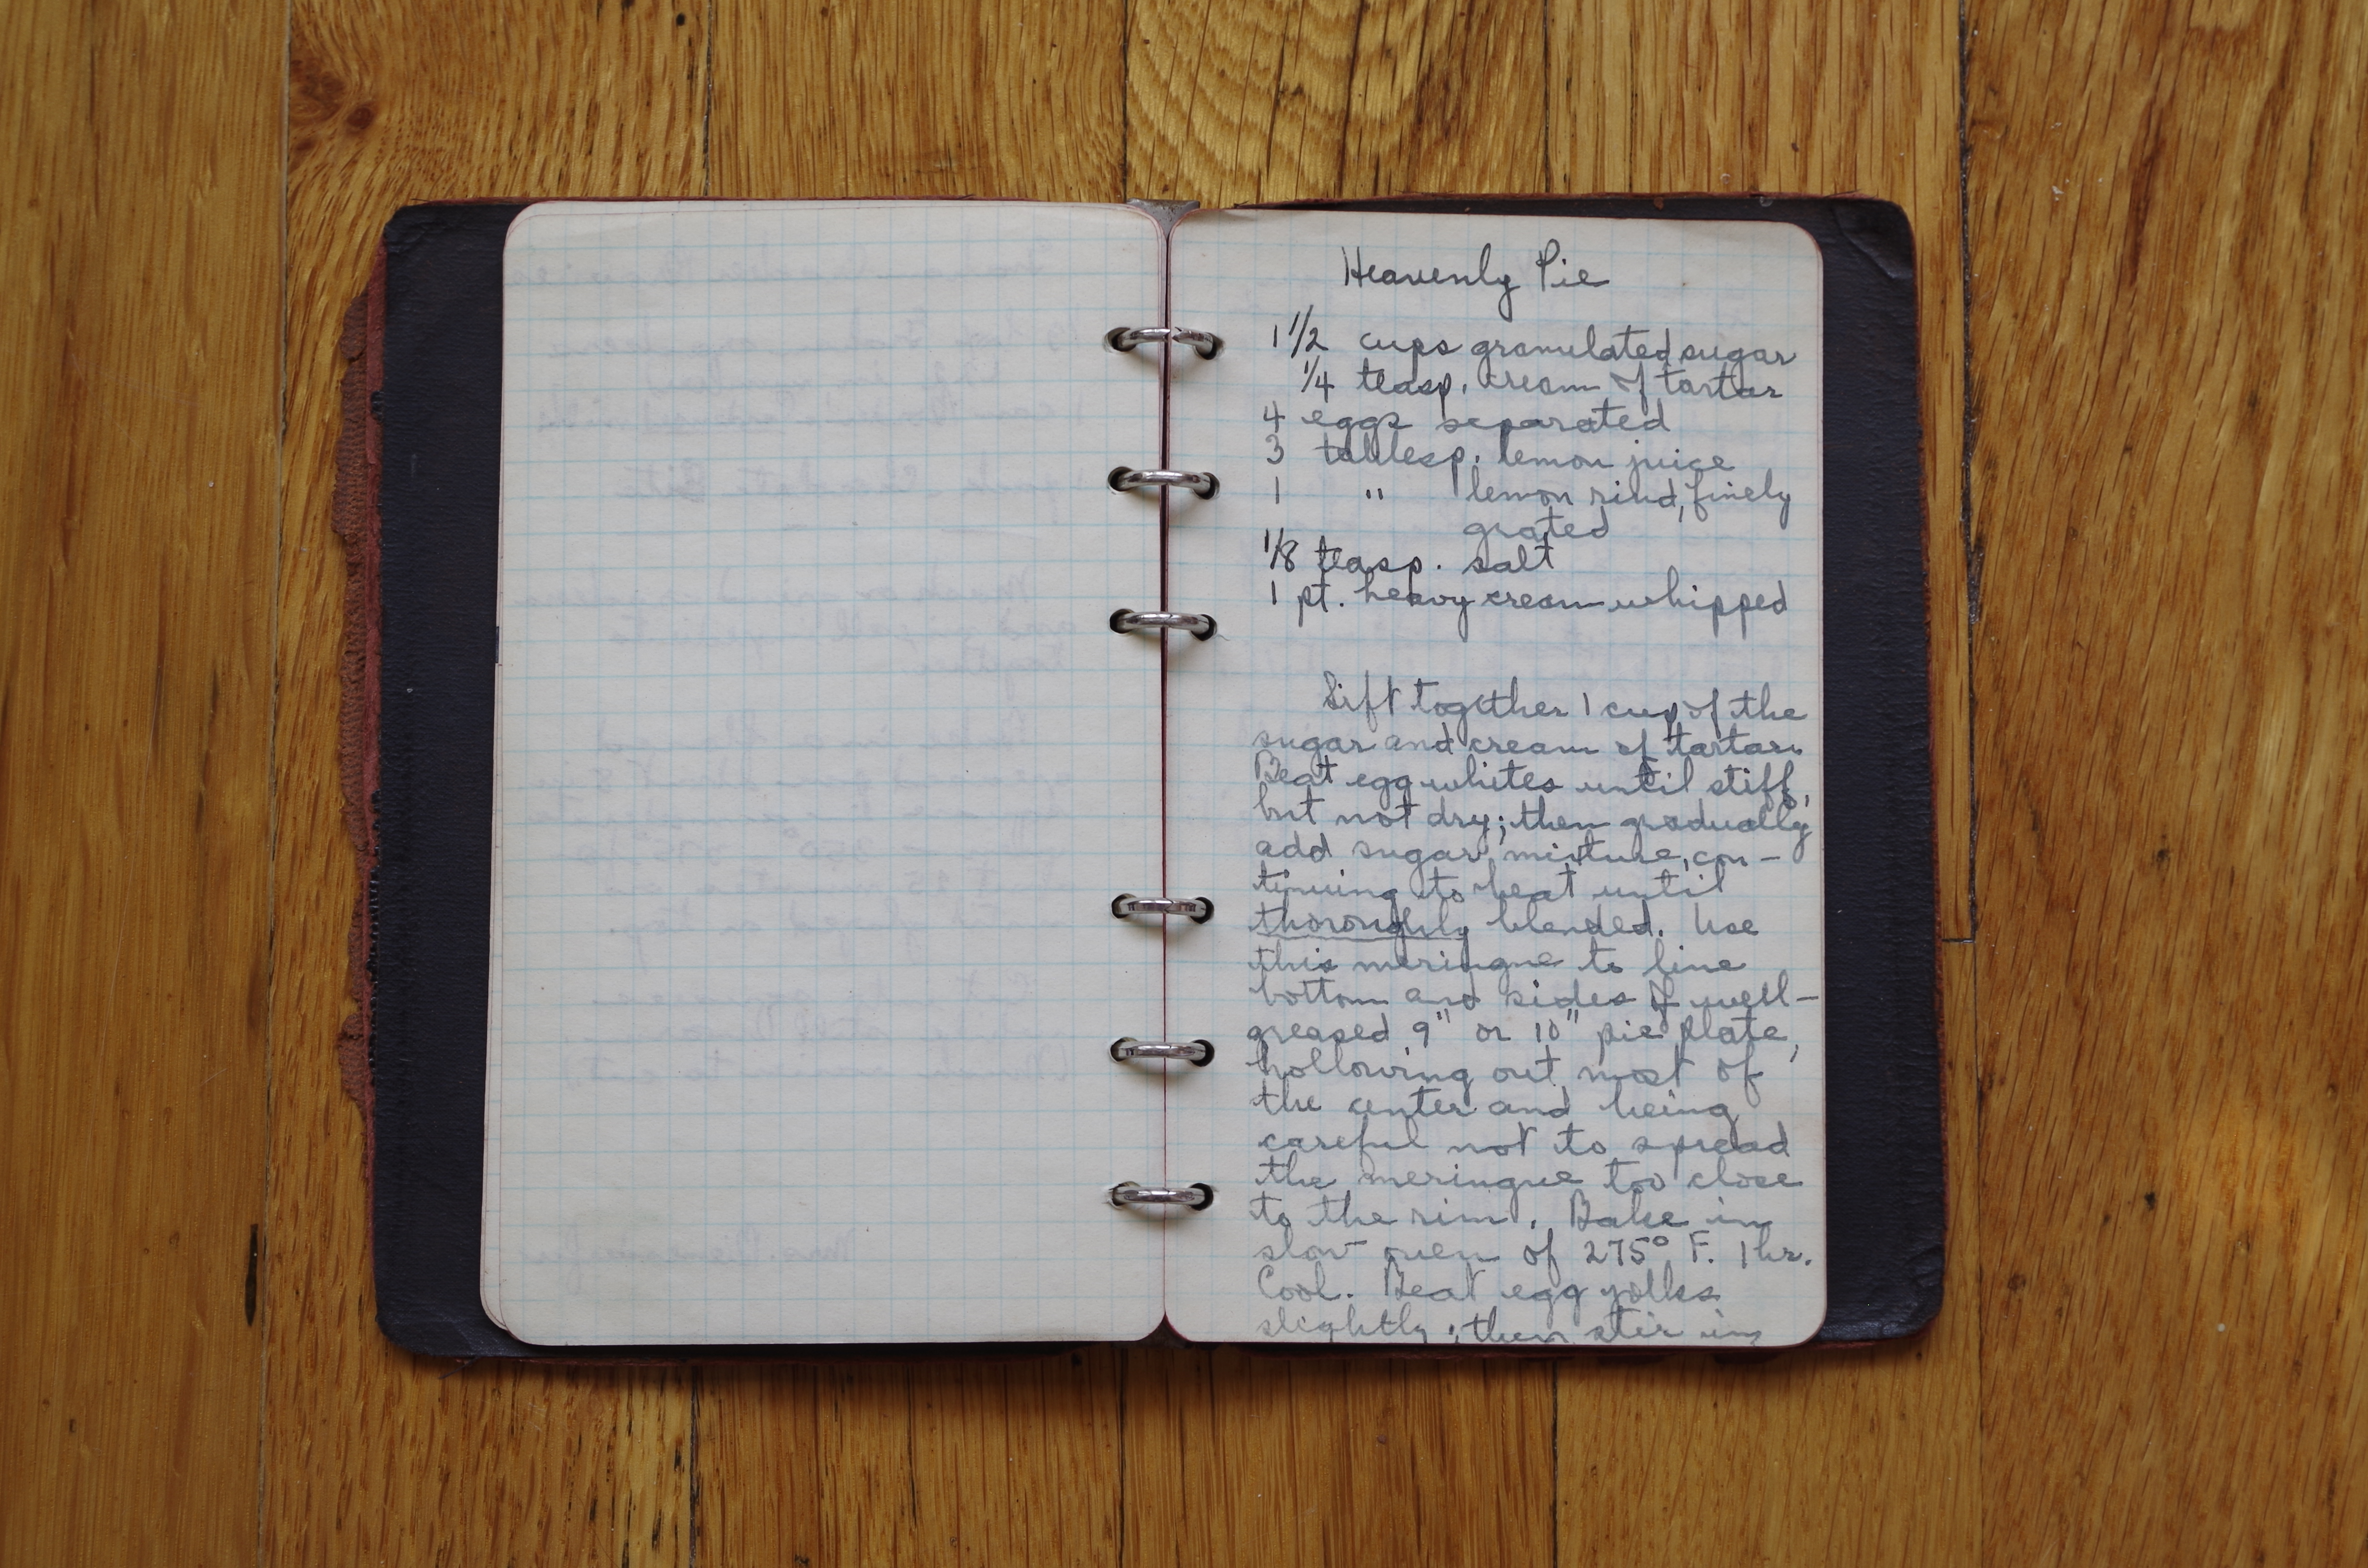 Heavenly Pie
1 1/2 cups granulated sugar
1/4 teasp. cream of tartar
4 eggs separated
3 tablesp. lemon juice
1 " lemon rind, finely
grated
1/8 teasp. salt
1 pt. heavy cream whipped
Sift together 1 cup of the
sugar and cream of tartar.
Beat egg whites until stiff,
but not dry; then gradually
add sugar mixture, con-
tinuing to beat until
thoroughly blended. Use
this meringue to line
bottom and sides of well-
greased 9" or 10" pie plate,
hollowing out most of
the center and being
careful not to spread
the meringue too close
to the rim. Bake in
slow oven of 275° F. 1 hr.
Cool. Beat egg yolks
slightly; then stir in